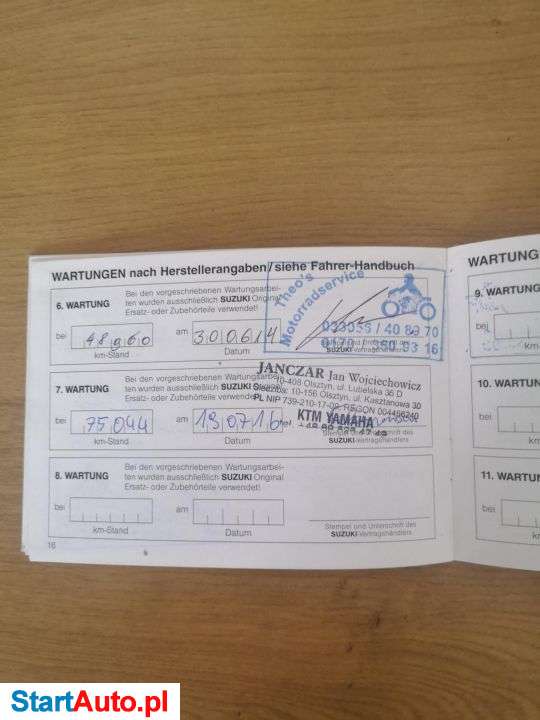 WARTUNGEN nach Herstellerangaben/siehe Fahrer-Handbuch
6. WARTUNG
Bei den vorgeschriebenen Wartungsarbei-
ten wurden ausschließlich SUZUKI Original
Ersatz- oder Zubehörteile verwendet!
bei 48960 am 300614
km-Stand Datum
Theo's
Motorradservice
033056 / 40 80 70
SUZUKI-Vertragshändlers
7. WARTUNG
Bei den vorgeschriebenen Wartungsarbei-
ten wurden ausschließlich SUZUKI
Ersatz- oder Zubehörteile verwendet!
bei 75044 am 130716
km-Stand Datum
JANCZAR Jan Wojciechowicz
10-408 Olsztyn, ul. Lubelska 36 D
10-156 Olsztyn, ul. Kusztanowa 30
PL NIP 739-210-17-02, REGON 004456240
KTM YAMAHA
SUZUKI-Vertragshändlers
8. WARTUNG
Bei den vorgeschriebenen Wartungsarbei-
ten wurden ausschließlich SUZUKI Original
Ersatz- oder Zubehörteile verwendet!
bei am
km-Stand Datum
Stempel und Unterschrift des
SUZUKI-Vertragshändlers
16
WARTUNG
9. WARTUNG
bei
10. WARTUN
bei
11. WARTUN
bei
StartAuto.pl